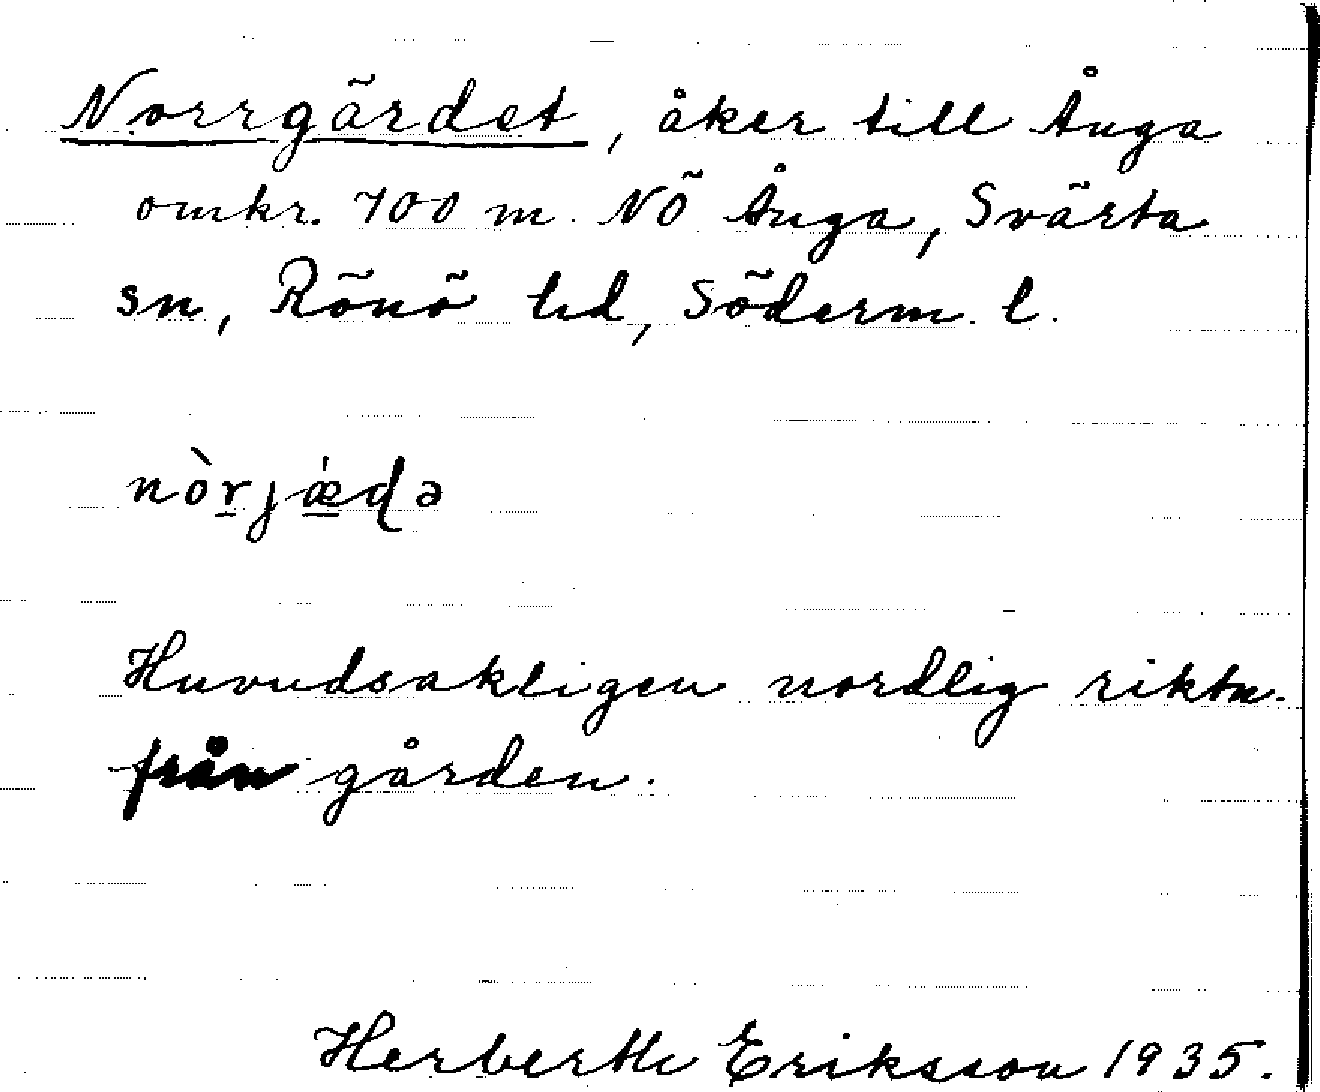 Norrgärdet, åker till Ånga
omkr. 700 m. NÖ Ånga, Svärta
sn, Rönö hd, Söderm. l.
nòr̲jǽ̲ɖə
Huvudsakligen nordlig riktn.
från gården.
Herberth Eriksson 1935.